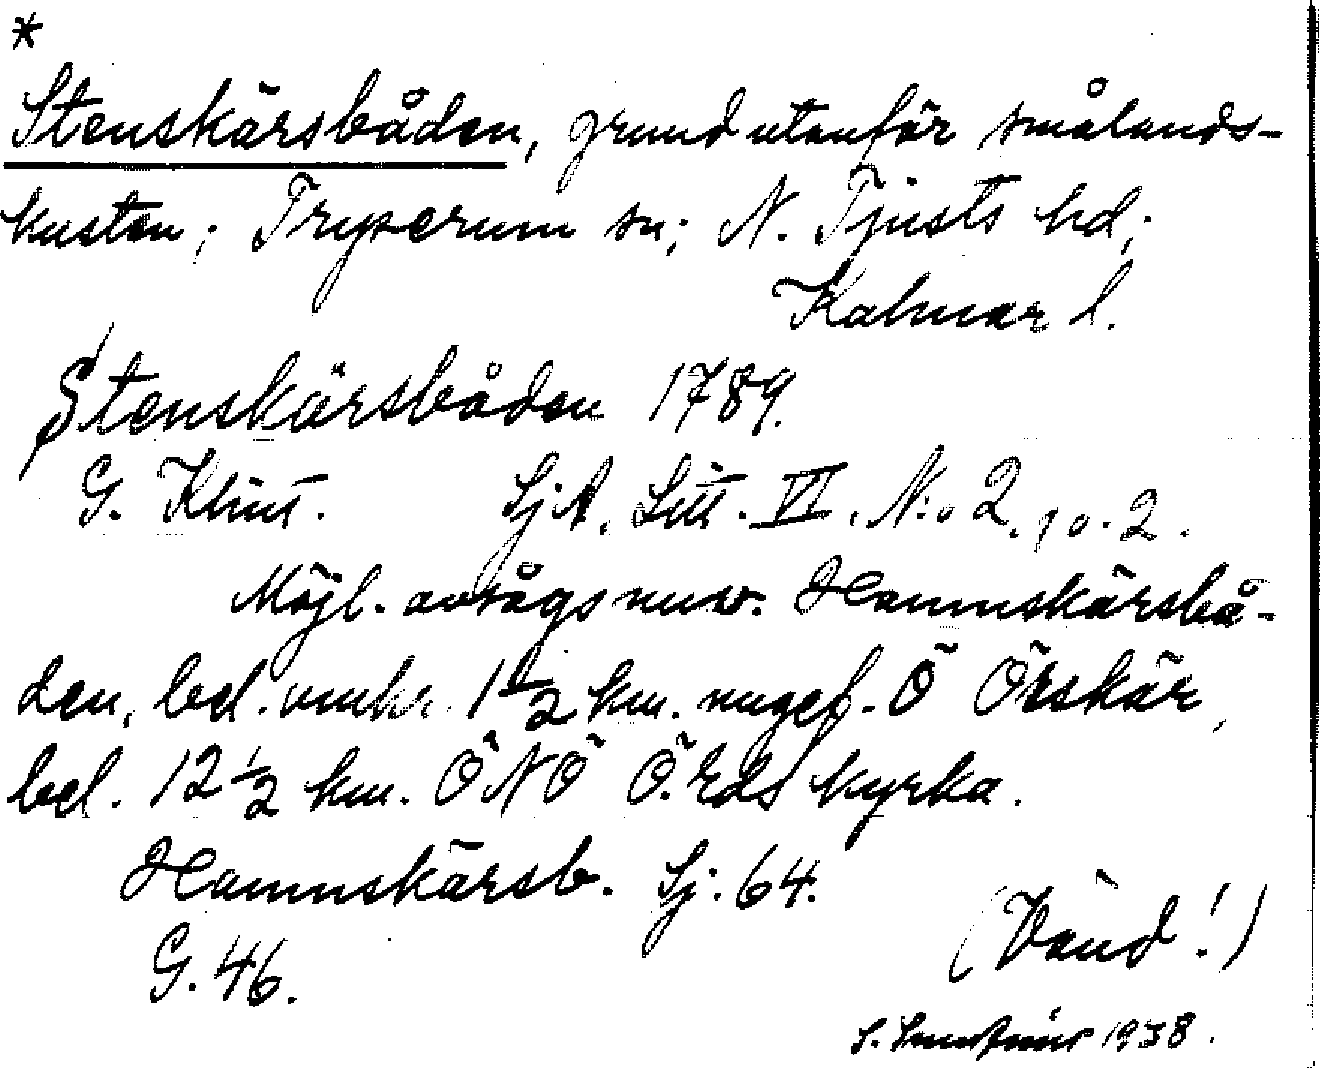 *
Stenskärsbåden, grund utanför smålands-
kusten; Tryserum sn; N. Tjusts hd;
Kalmar l.
Stenskärsbåden 1789.
G. Klint. SjA. Litt. VI. N:o 2, 10. 2.
Möjl. avsågs nuv. Hamnskärsbå-
den, bel. omkr. 1 1/2 km. ungef. Ö Örskär,
bel. 12 1/2 km. ÖNÖ Ö. Eds kyrka.
Hamnskärsb. Sj. 64.
G. 46.
(Vänd!)
S. 1938.